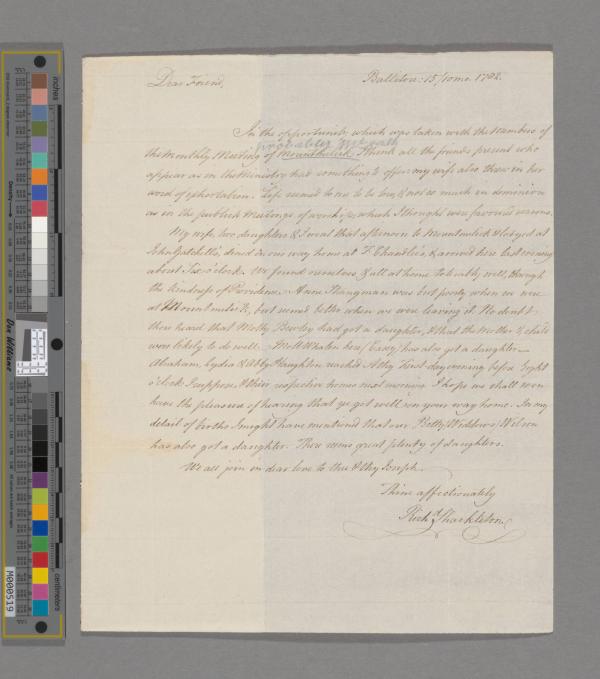 Dear Friend,
Ballitore: 15/10mo. 1782.
In the opportunity which was taken with the Members of
probably Mt rath
the Monthly Meeting of Mountmelick I think all the friends present who
appear as in the Ministry had something to offer: my wife also threw in her
word of exhortation. Life seemed to me to be low, & not so much in dominion
as in the publick Meetings of worship, which I thought were favoured seasons.
My wife, two daughters & I went that afternoon to Mountmelick & lodged at
John Gatchell's, dined on our way home at T. Chandlee's, & arrived here last evening
about Six o'clock. We found ourselves & all at home tolerably well, through
the kindness of Providence. Anne Strangman was but poorly when we were
at Mountmelick, but seemed better when we were leaving it. No doubt
thou heard that Molly Bewley had got a daughter, & that the Mother & child
were likely to do well. Moll Whalen here (Casey) has also got a daughter
Abraham, Lydia & Abby Haughton reach'd Athy First-day evening before Eight
o'clock I suppose, & their respective homes next morning. I hope we shall soon
have the pleasure of hearing that ye got well on your way home. In my
detail of births I might have mentioned that our Betty, Widdow's Wilson
has also got a daughter. There seems great plenty of daughters.
We all join in dear love to thee & thy Joseph.
Thine affectionately
Richd. Shackleton.
inches
centimetres
Don Williams
M000519